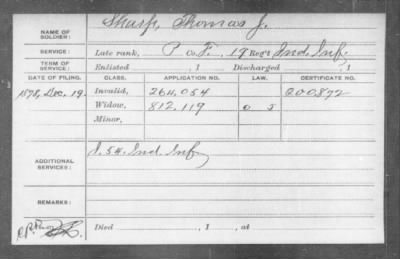 NAME OF SOLDIER: Sharp, Thomas J.
SERVICE: Late rank, P Co. F, 19 Reg't Ind. Inf.
TERM OF SERVICE: Enlisted , 1 Discharged , 1
DATE OF FILING. CLASS. APPLICATION NO. LAW. CERTIFICATE NO.
1878, Dec. 19. Invalid, 264.054 200872
Widow, 812.119 O. S
Minor,
ADDITIONAL SERVICES: I. 54. Ind. Inf
REMARKS:
Died , 1 , at